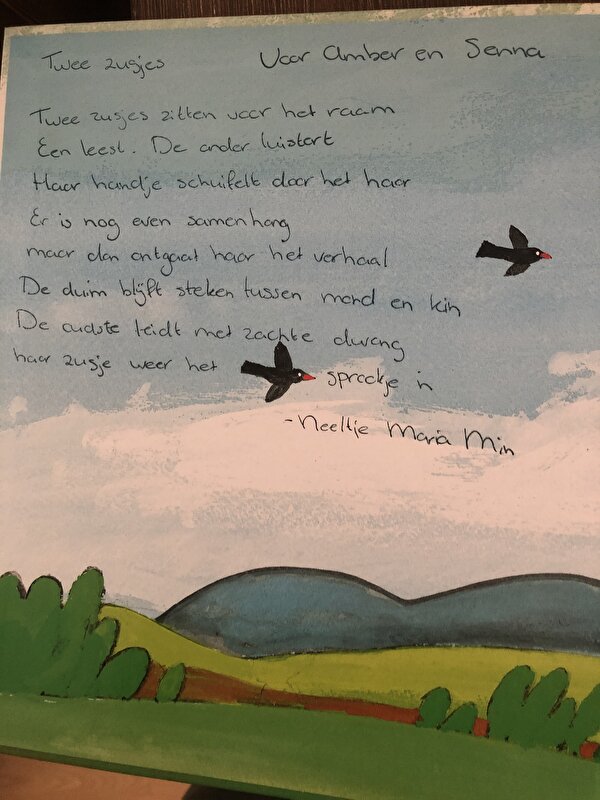 Twee zusjes Voor Amber en Senna
Twee zusjes zitten voor het raam
Een leest. De ander luistert
Haar handje schuifelt door het haar
Er is nog even samenhang
maar dan ontgaat haar het verhaal
De duim blijft steken tussen mond en kin
De oudste leidt met zachte dwang
haar zusje weer het sprookje in
- Neeltje Maria Min